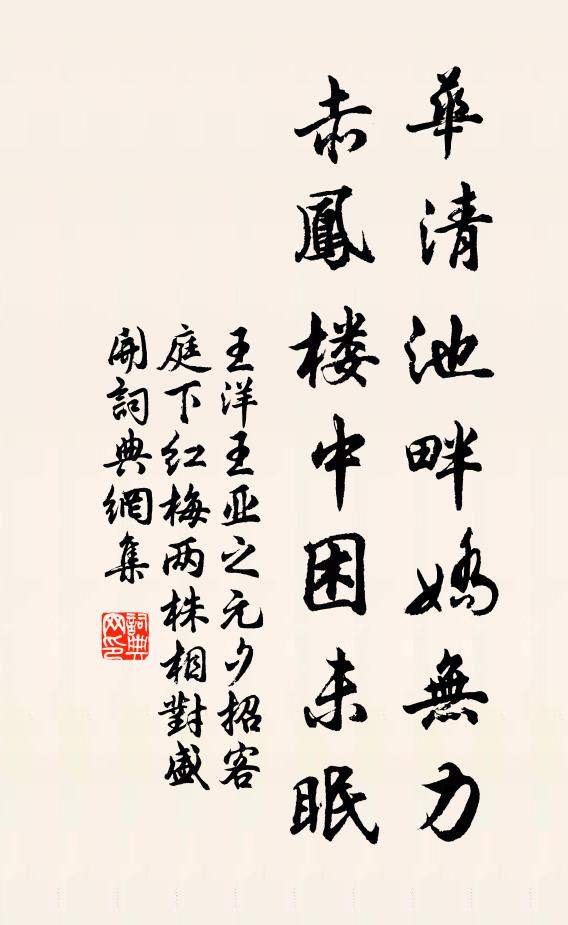 華清池畔嬌無力
赤鳳楼中困未眠
王洋王亚之元夕招客
庭下红梅两株相對盛
開詞典網集
詞典网印